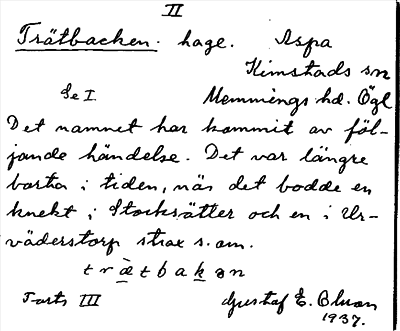 II
Trätbacken. hage. Aspa
Kimstads sn
Se I. Memmings hd. Ögl
Det namnet har kommit av föl-
jande händelse. Det var längre
borta i tiden, när det bodde en
knekt i Stocksätter och en i Ur-
väderstorp strax s. om.
trä̀tbakən
Forts III Gustaf E. Bluon
1937.